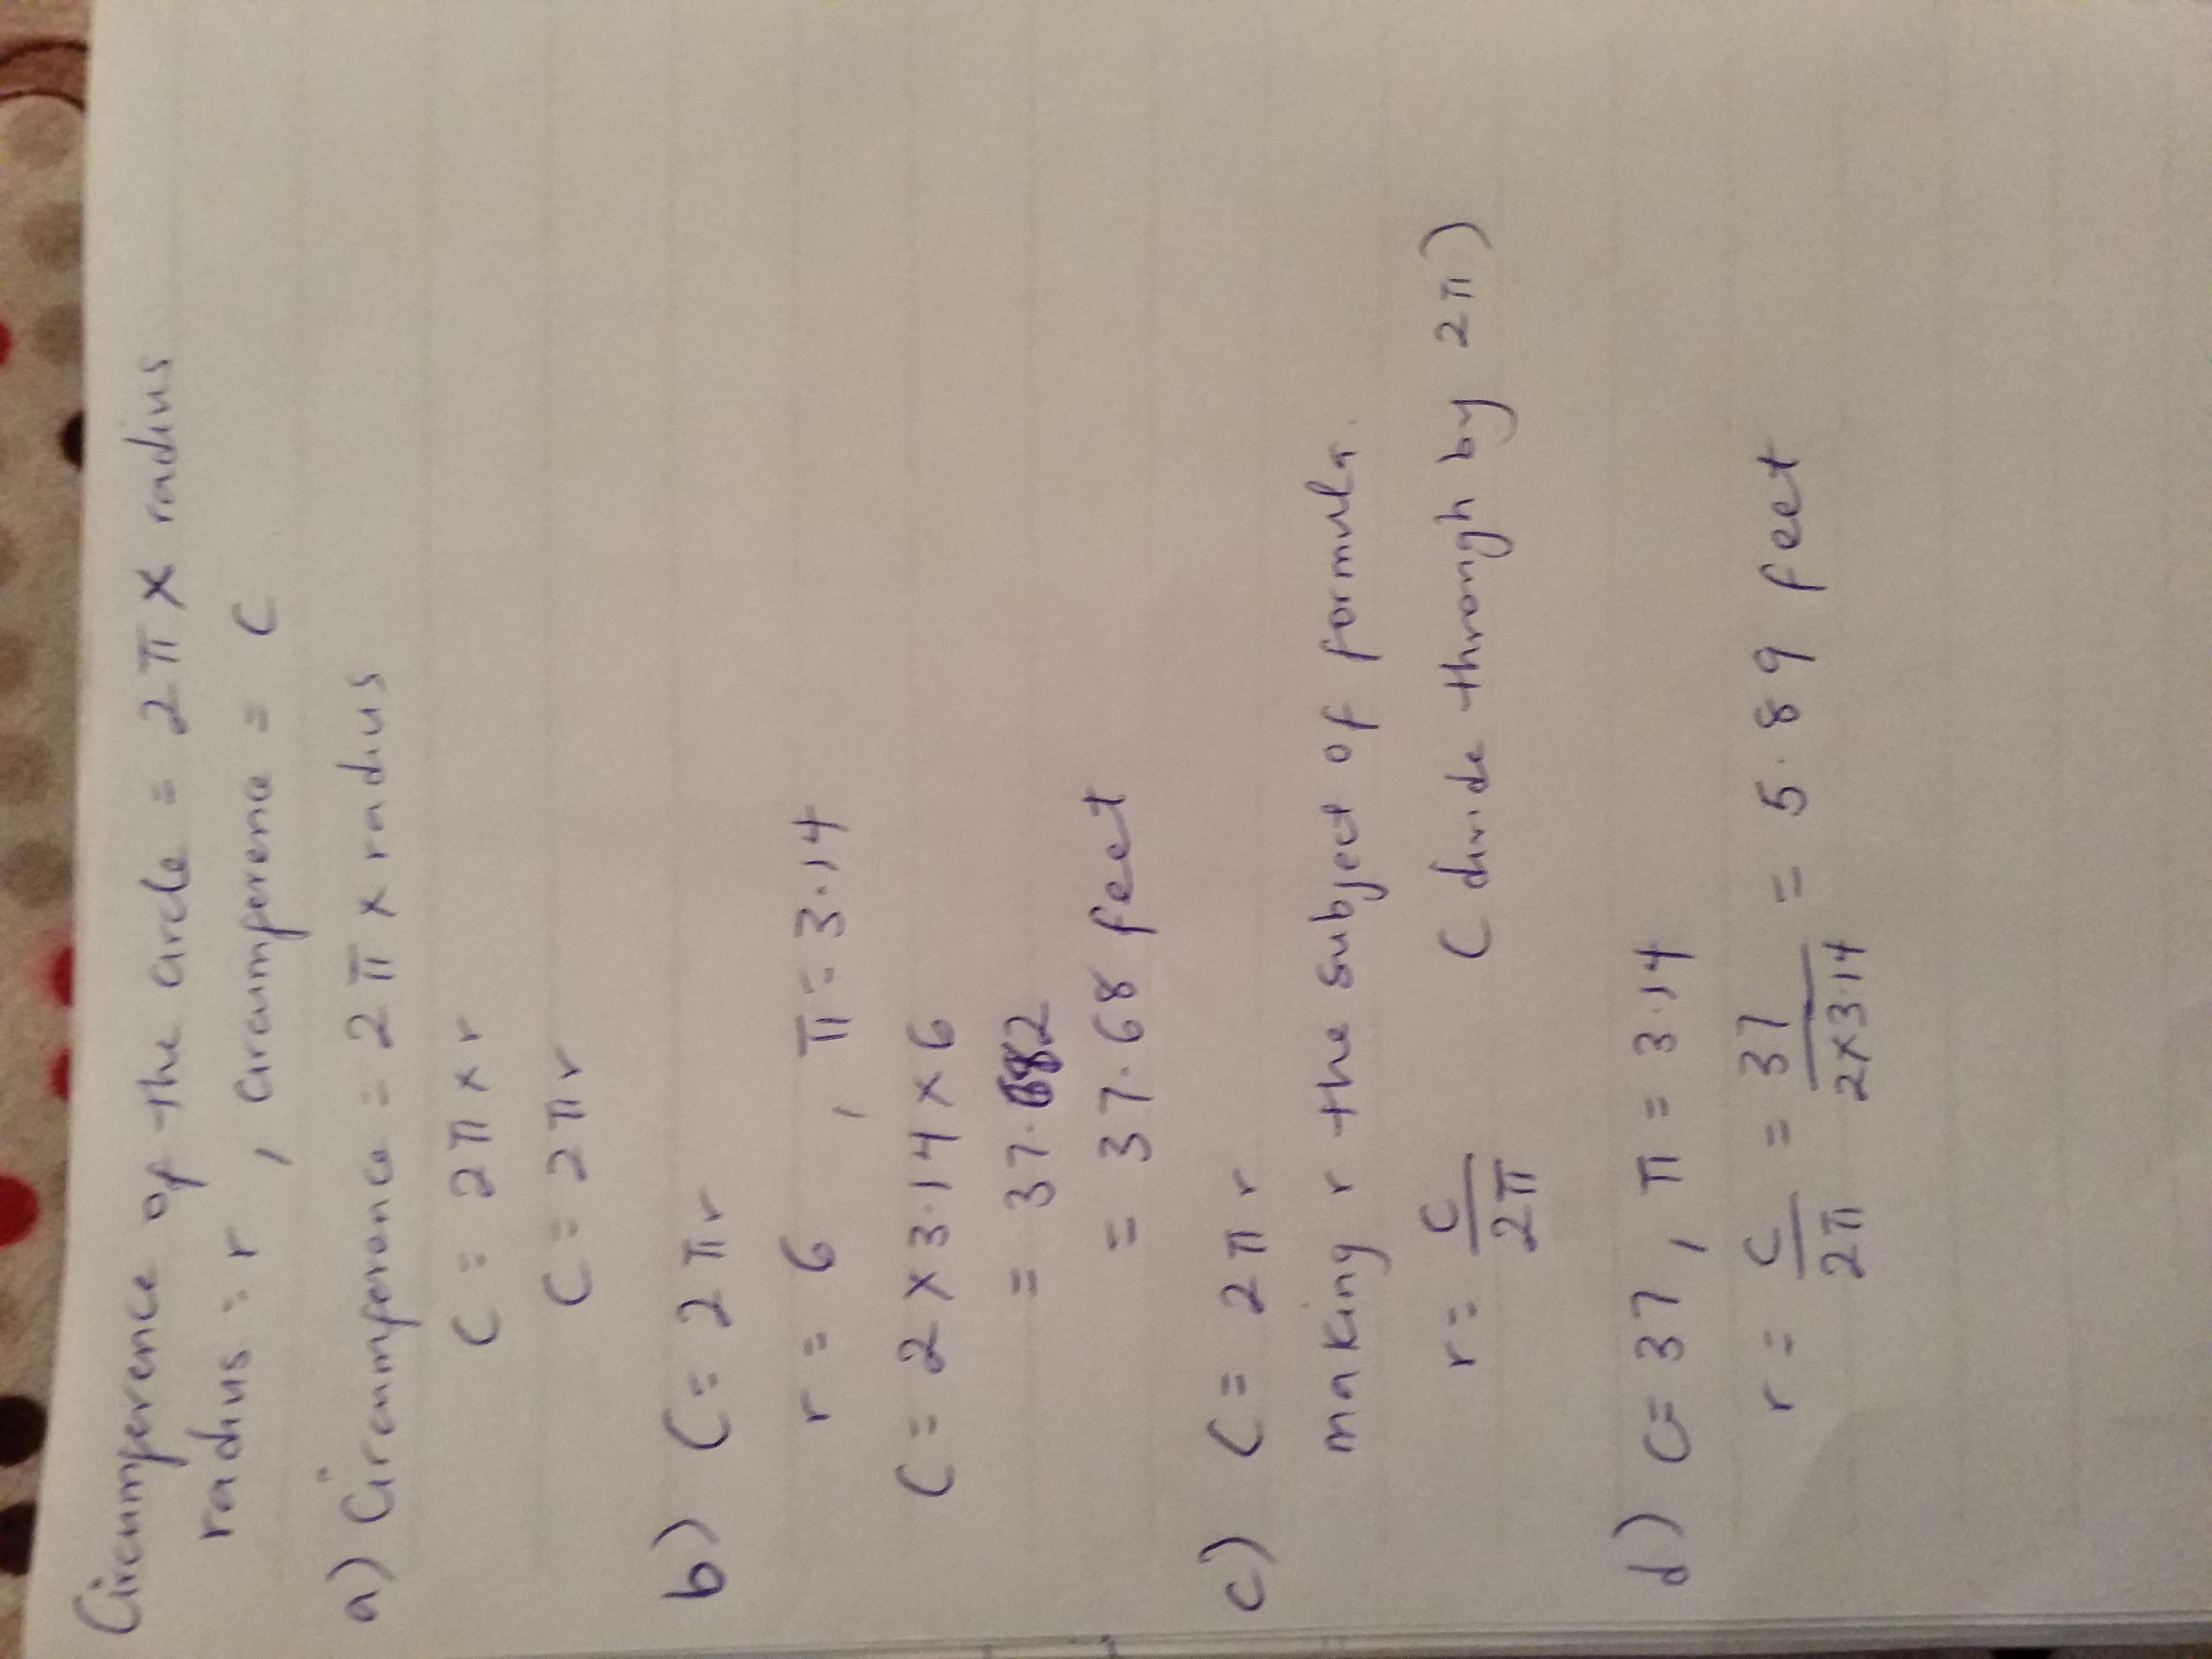 Circumference of the circle = 2π × radius
radius = r , circumference = C
a) Circumference = 2π × radius
C = 2π × r
C = 2πr
b) C = 2πr
r = 6 , π = 3.14
C = 2×3.14×6
= 37.682
= 37.68 feet
c) C = 2πr
making r the subject of formula.
r = C/2π (divide through by 2π)
d) C = 37, π = 3.14
r = C/2π = 37/2×3.14 = 5.89 feet